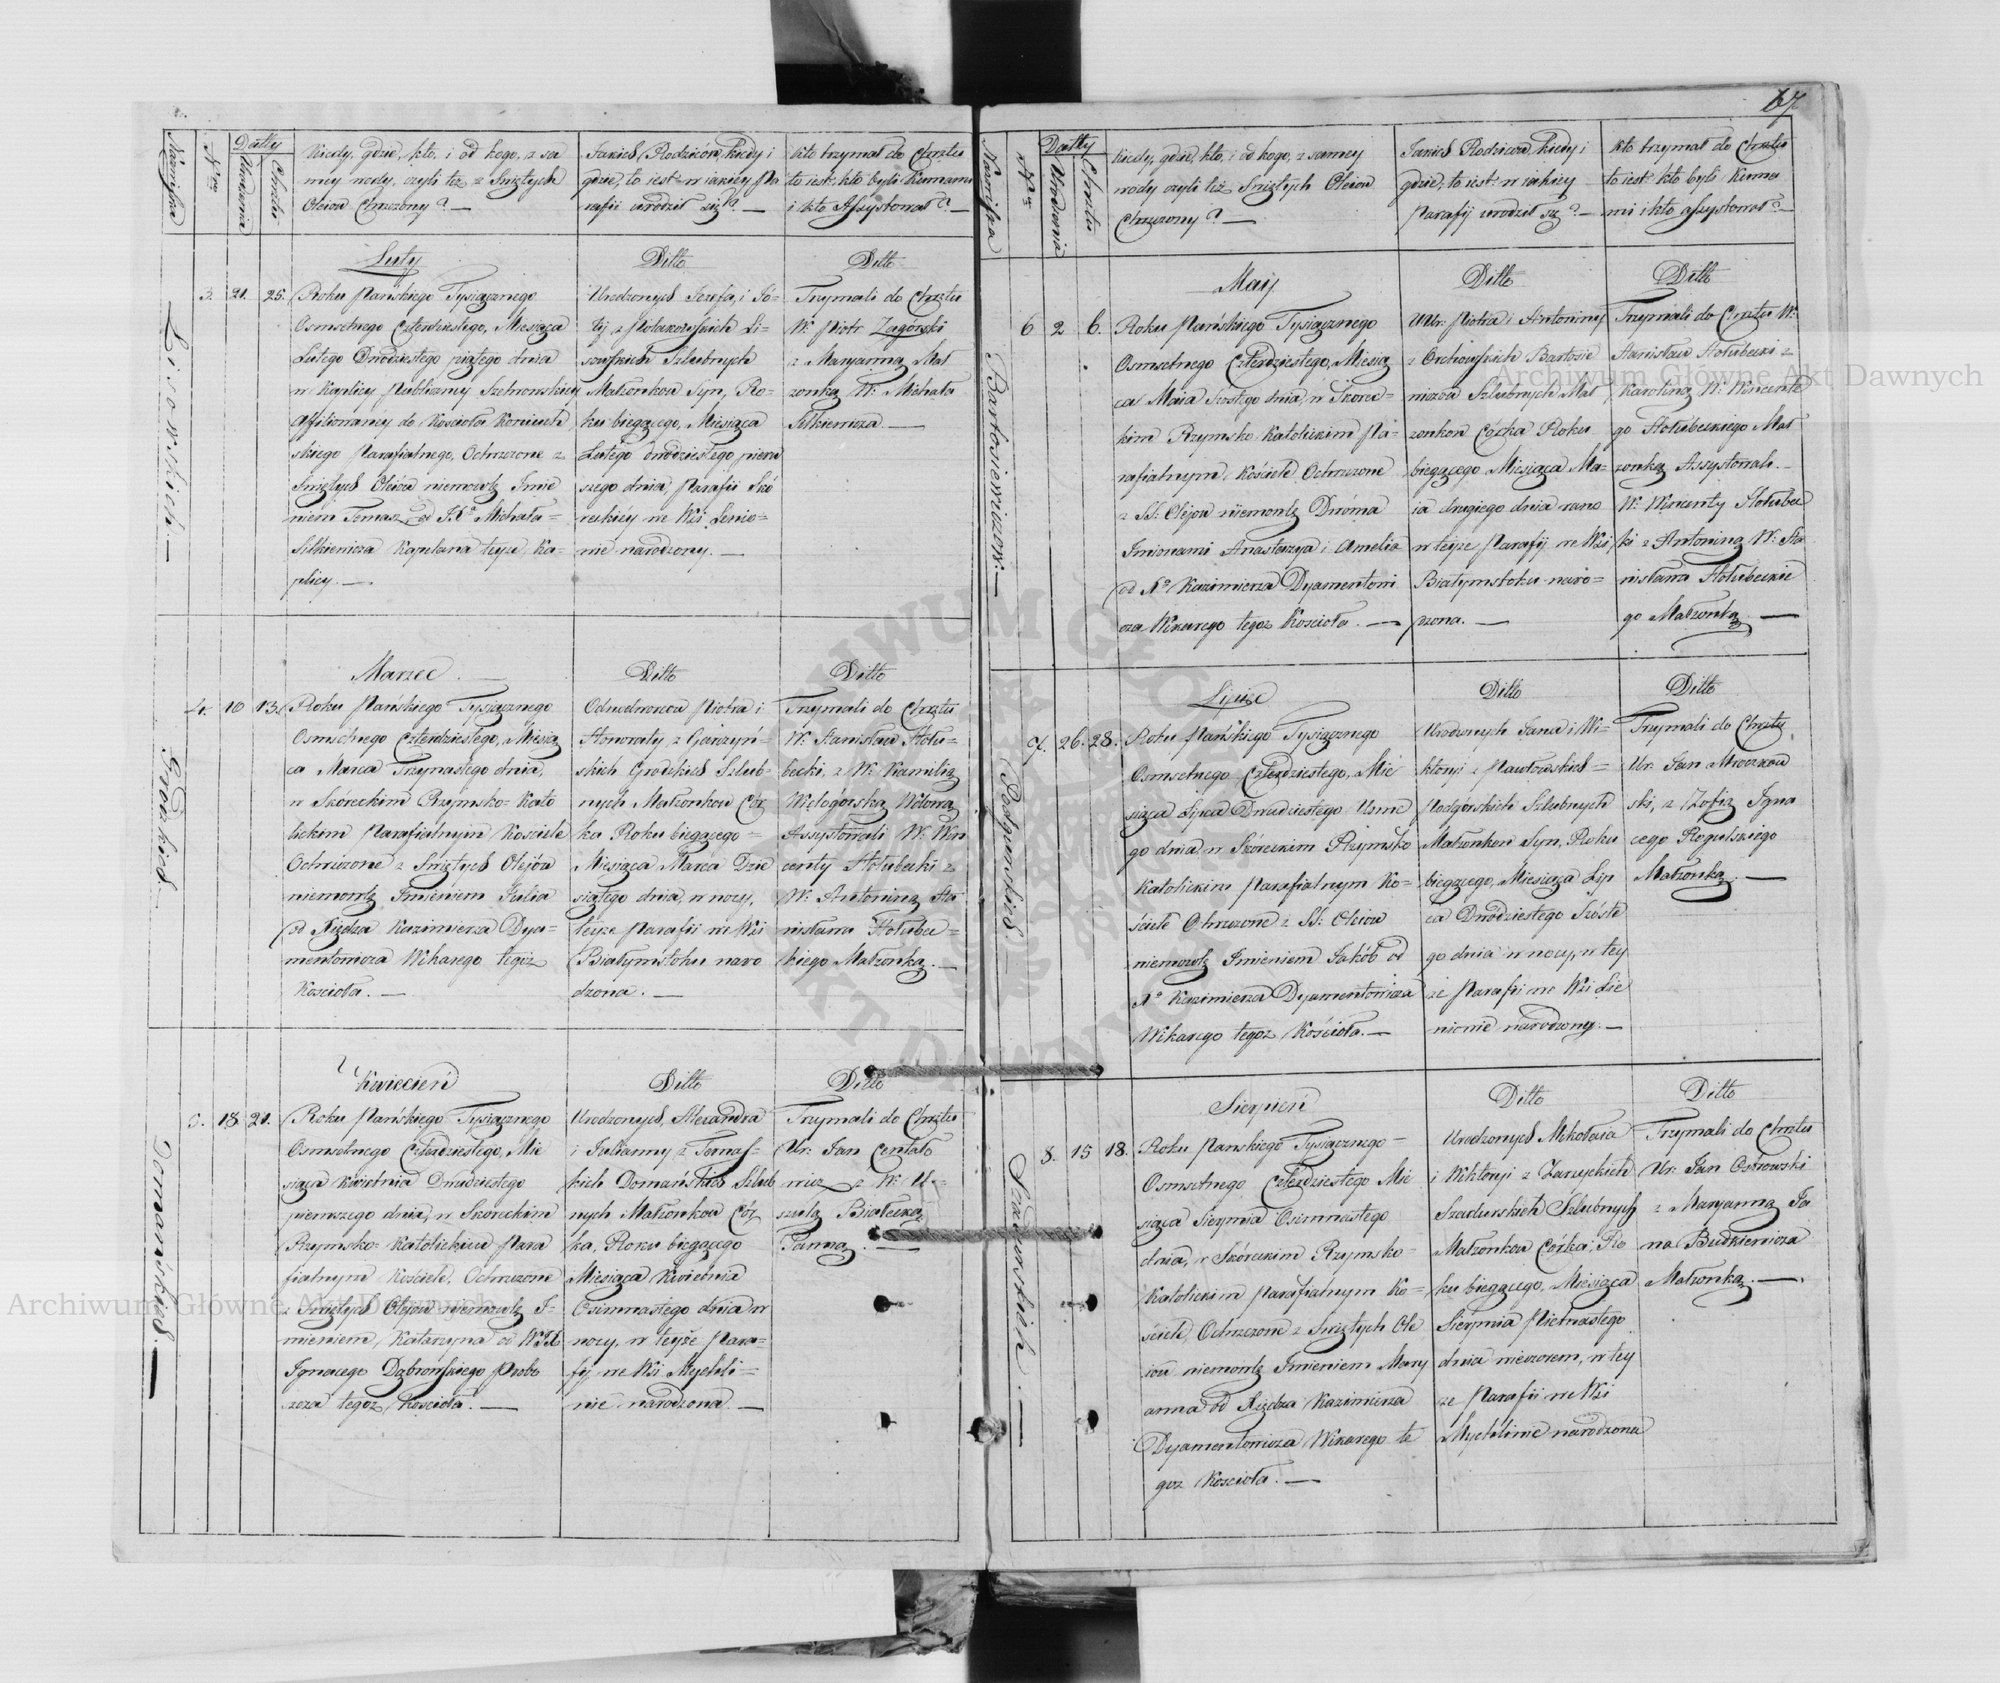 67
Nazwiska
Nro
Datty
Urodzenia
Chrztu
Kiedy, gdzie, kto, i od kogo, z sa
mey wody, czyli też z Świętych
Oleiow Chrzczony? —
Jakich Rodziców, kiedy i
gdzie, to iest: w iakiey Pa
rafii urodził się? —
Kto trzymał do Chrztu
to iest: kto byli Kumami
i kto Assystował? —
Lisowskich. —
3. 21. 25.
Luty
Roku Pańskiego Tysiącznego
Osmsetnego Czterdziestego, Miesiąca
Lutego Dwudziestego piątego dnia
w Kaplicy Publiczney
Affiliowaney do Kościoła
skiego Parafialnego, Ochrzczone z
Świętych Oleiów niemowle Imie
niem Tomasz od JX° Michała
Kapelana teyże Ka-
plicy. —
Ditto
Urodzonych Jozefa, i
Li-
sowskich Szlubnych
Małżonkow Syn, Ro-
ku biegącego, Miesiąca
Lutego dwudziestego pierw
szego dnia, Parafii Skó
reckiey we Wsi Lenie-
nie narodzony. —
Ditto
Trzymali do Chrztu
W: Piotr Zagórski
z Maryanną Mał
żonką W: Michała
—
Grodzkich.
4. 10 13.
Marzec. —
Roku Pańskiego Tysiącznego
Osmsetnego Czterdziestego, Miesią
ca Marca Trzynastego dnia,
w Skóreckim Rzymsko-Kato
lickim Parafialnym Kościele
Ochrzczone z Świętych Olejów
niemowle Imieniem Julia
od Xiędza Kazimierza Dya-
mentowicza Wikarego tegoż
Kościoła. —
Ditto
Odnodworcow Piotra i
Honoraty z Garżyń-
skich Grodzkich Szlub-
nych Małżonkow Cór
ka Roku biegącego -
Miesiąca Marca Dzie
siątego dnia, w nocy,
teyże Parafii we Wsi
Białymstoku naro
dzona. —
Ditto
Trzymali do Chrztu
W: Stanisław Hołu-
becki, z W: Kamilią
Wdową
Assystowali W: Win
centy Hołubecki z
W: Antoniną Sta
nisława Hołubec-
kiego Małżonką. —
Domańskich. —
5. 18. 21.
Kwiecień
Roku Pańskiego Tysiącznego
Osmsetnego Czterdziestego, Mie
siąca Kwietnia Dwudziestego
pierwszego dnia, w Skoreckim
Rzymsko-Katolickim Para
fialnym Kościele, Ochrzczone
z Świętych Olejow niemowle I-
mieniem, Katarzyna od WJX
Ignacego Dąbrowskiego Probo
szcza tegoż Kościoła. —
Ditto
Urodzonych, Alexandra
i Julianny z Tomasz-
kich Domańskich Szlub
nych Małżonkow Cór
ka, Roku biegącego
Miesiąca Kwietnia
Osimnastego dnia w
nocy, w teyże Para-
fij we Wsi Mychli-
nie narodzona. —
Ditto
Trzymali do Chrztu
Ur: Jan
z W: U-
szulą Białecką
Panną. —
Nazwiska
Nro
Datty
Urodzenia
Chrztu
Kiedy, gdzie, kto, i od kogo, z samey
wody czyli też Świętych Oleiow
Chrzczony? —
Jakich Rodzicow, kiedy i
gdzie, to iest: w iakiey
Parafij urodził się? —
Kto trzymał do Chrztu
to iest: kto byli Kuma
mi i kto assystował? —
Bartosiewiczow. —
6 2 6.
Maij
Roku Pańskiego Tysiącznego
Osmsetnego Czterdziestego, Miesią
ca Maia Szostego dnia, w Skorec-
kim Rzymsko Katolickim Pa-
rafialnym Kościele Ochrzczone
z SS: Olejow niemowle Dwóma
Imionami Anastazya i Amelia
od X° Kazimierza Dyamentowi
cza Wikarego tegoż Kościoła. —
Ditto
UUr: Piotra i Antoniny
z Orchowskich Bartosie
wiczow Szlubnych Mał
żonkow Córka Roku
biegącego Miesiąca Ma-
ia drugiego dnia rano
w teyże Parafij we Wsi
Białymstoku naro-
dzona. —
Ditto
Trzymali do Chrztu W:
Stanisław Hołubecki z
Karoliną W: Wincente
go Hołubeckiego Mał
żonką Assystowali.
W: Wincenty Hołubec
ki z Antoniną W: Sta
nisława Hołubeckie
go Małżonką —
Podgurskich. —
7. 26. 28.
Lipiec
Roku Pańskiego Tysiącznego
Osmsetnego Czterdziestego, Mie
siąca Lipca Dwudziestego Usme
go dnia w Skóreckim Rzymsko
Katolickim Parafialnym Ko-
ściele Ochrzczone z SS: Oleiow
niemowle Imieniem Jakób od
X° Kazimierza Dyamentowicza
Wikarego tegoż Kościoła. —
Ditto
Urodzonych Jana i Wi-
ktoryi z Pawłowskich -
Podgórskich Szlubnych
Małżonkow Syn, Roku
biegącego, Miesiąca Lip
ca Dwudziestego Szóste
go dnia w nocy, w tey
że Parafii we Wsi Lie
niewie narodzony. —
Ditto
Trzymali do Chrztu,
Ur: Jan Mroczkow
ski, z Zofią Igna
cego Rogulskiego
Małżonką. —
Szadurskich. —
8. 15 18.
Sierpień
Roku Panskiego Tysiącznego -
Osmsetnego Czterdziestego Mie
siąca Sierpnia Osimnastego
dnia, w Skóreckim Rzymsko-
Katolickim Parafialnym Ko-
ściele, Ochrzczone z Świętych Ole
iow niemowle Imieniem Mary
anna od Xiędza Kazimierza
Dyamentowicza Wikarego te
goż Kościoła. —
Ditto
Urodzonych Mikołaia
i Wiktoryi z Zarzyckich
Szadurskich Szlubnych
Małżonkow Córka, Ro
ku biegącego, Miesiąca
Sierpnia Pietnastego
dnia wieczorem, w tey
że Parafii we Wsi
Mychlinie narodzona
Ditto
Trzymali do Chrztu
Ur: Jan Ostrowski
z Maryanną Ja
na Budkiewicza
Małżonką. —
Archiwum Główne Akt Dawnych
Archiwum Główne Akt Dawnych